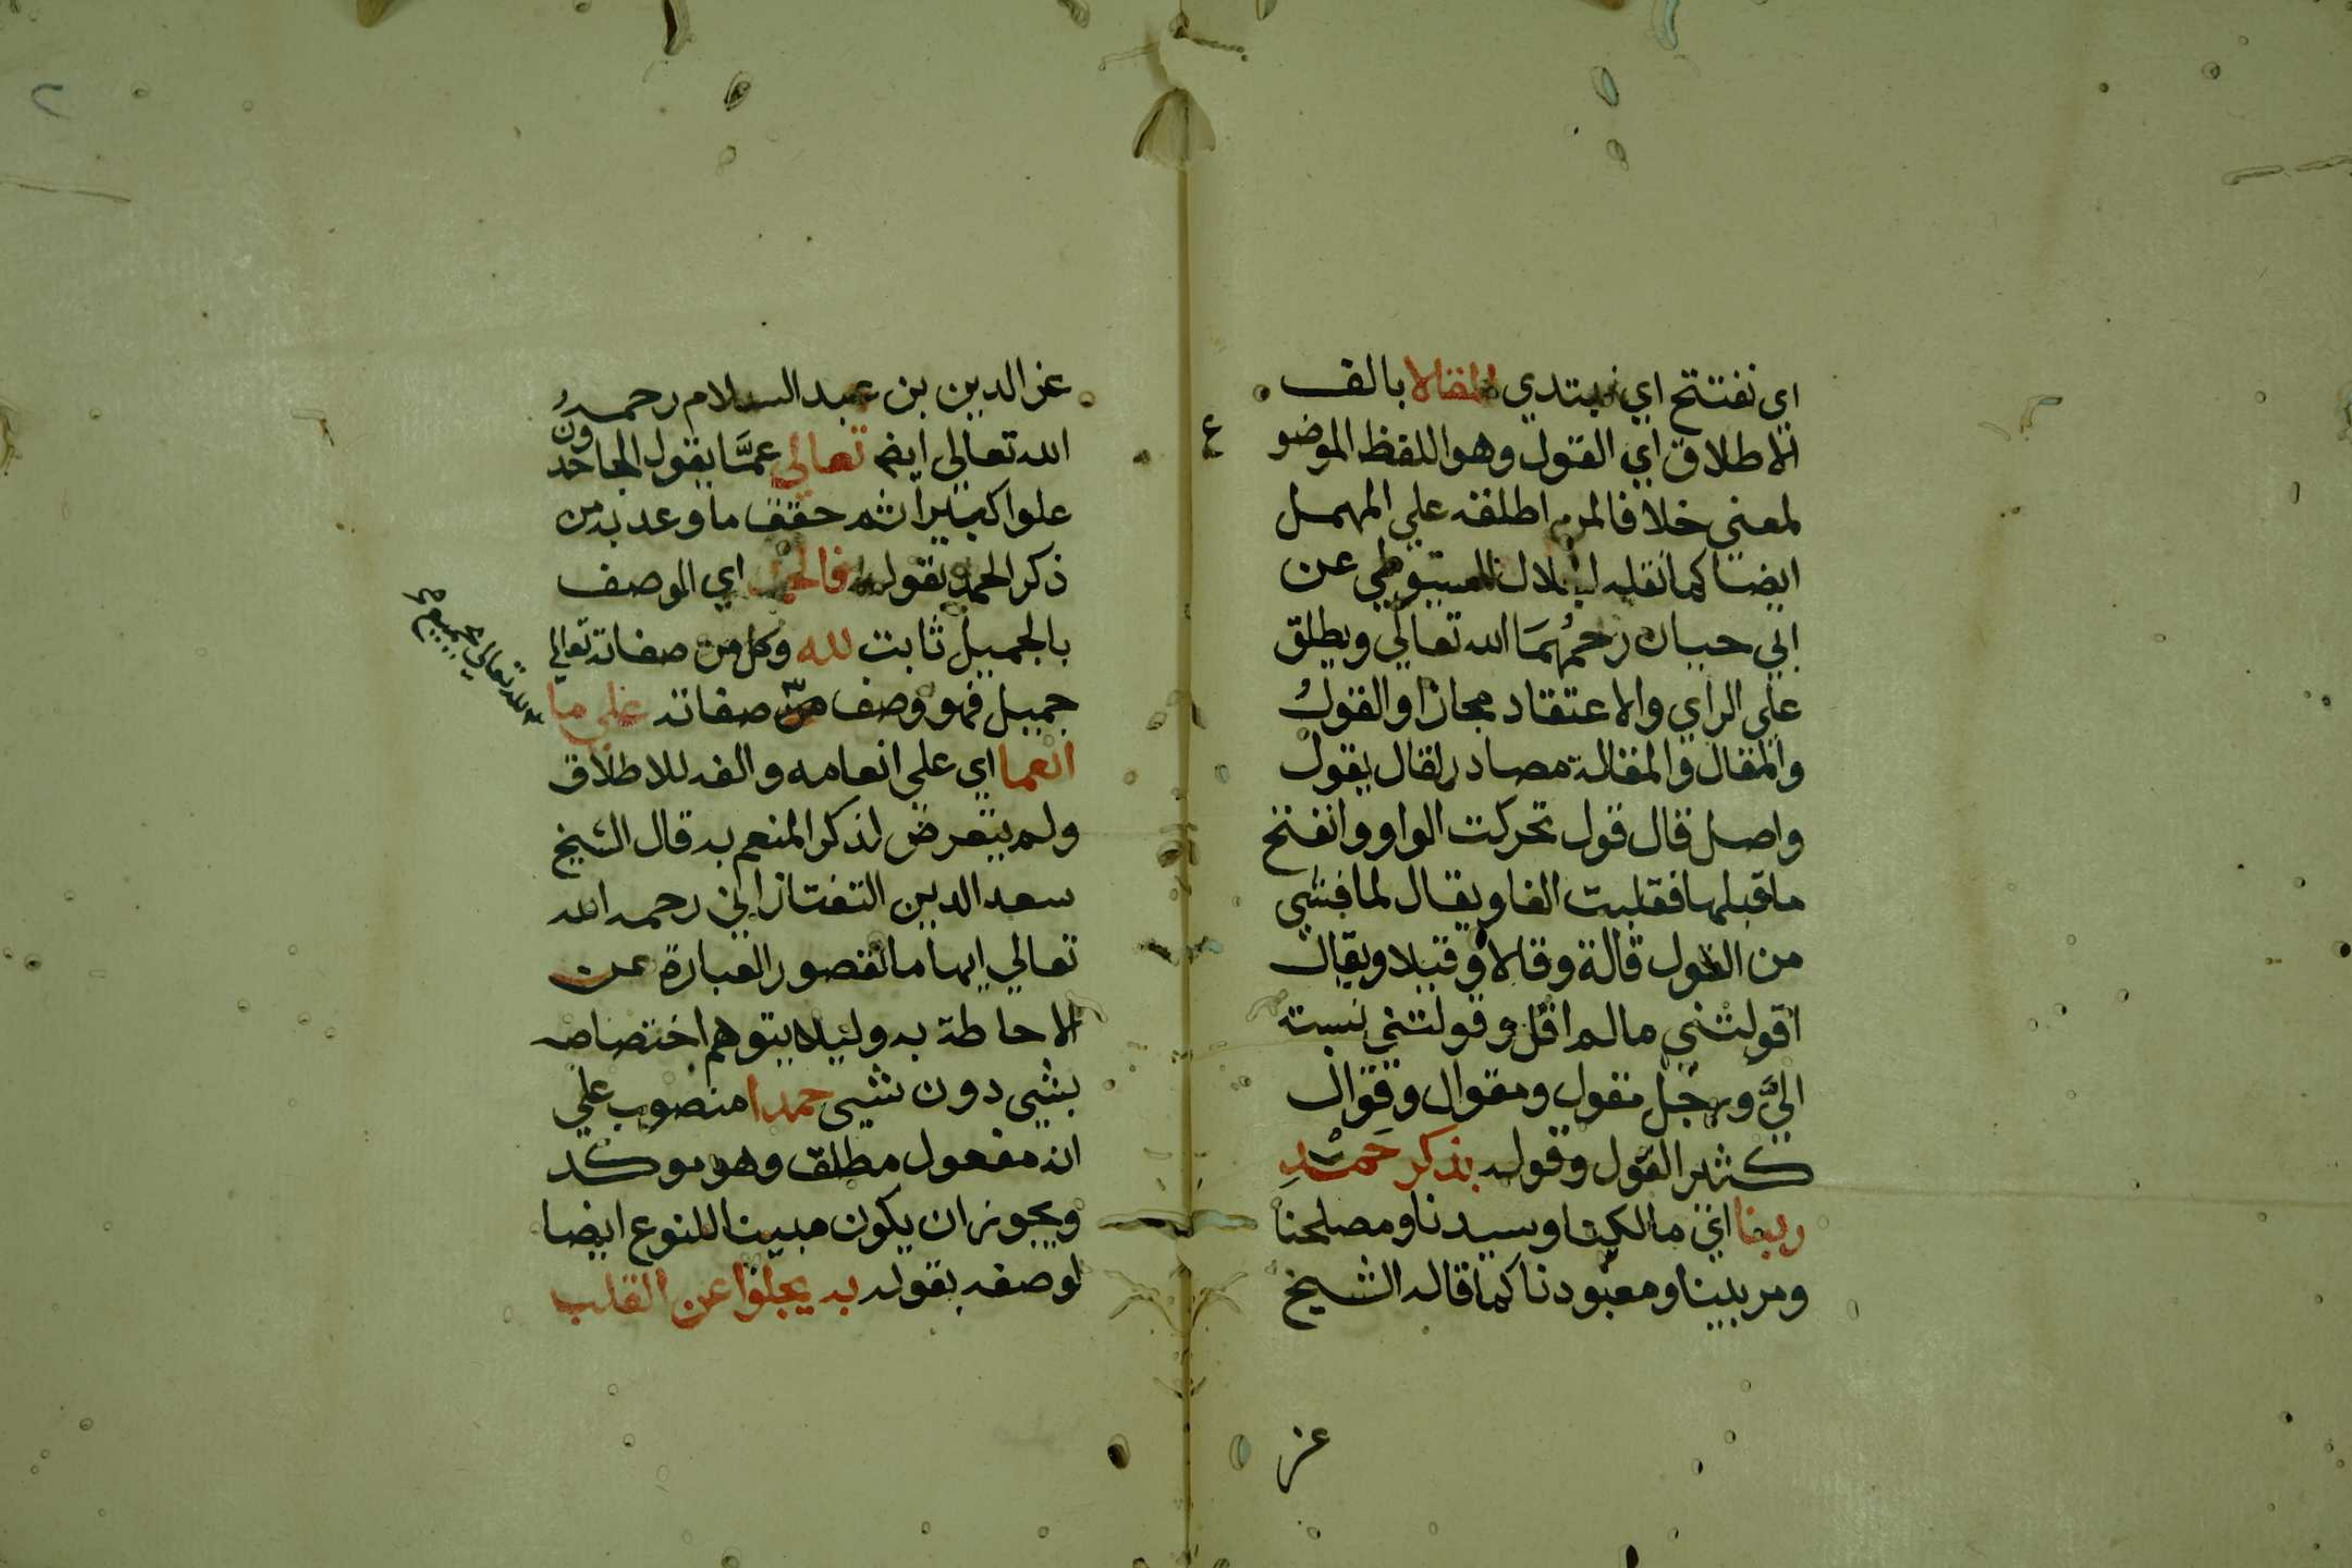 اي نفتتح اي نبتدي المقالا بالف
الاطلاق اي القول وهو اللفظ الموضو
ع
لمعني خلافا لمن اطلقه علي المهمل
ايضا كما نقله الجلال السيوطي عن
ابي حيان رحمهما الله تعالي ويطلق
علي الراي والاعتقاد مجازا والقول
والمقال والمقالة مصادر لقال يقول
واصل قال قول تحركت الواو وانفتح
ما قبلها فقلبت الفا ويقال لما فشي
من القول قالة وقالا وقيلا ويقال
اقولتني ما لم اقل وقولتني نسبته
اليَّ ورجل مقول ومقوال وقوال
كثير القول وقوله بذكر حمد
ربنا اي مالكنا وسيدنا ومصلحنا
ومربينا ومعبودنا كما قاله الشيخ
عز
عز الدين بن عبد السلام رحمه
الله تعالي ايضا تعالي عمَّا يقول الجاحدون
علوا كبيرا ثم حقق ما وعد به من
ذكر الحمد بقوله فالحمد اي الوصف
بالجميل ثابت لله وكل من صفاته تعالي
جميل فهو وصف من صفاته علي ما
انعما اي علي انعامه والفه للاطلاق
ولم يتعرض لذكر المنعم به قال الشيخ
سعد الدين التفتازاني رحمه الله
تعالي ايهاما لقصور العبارة عن
الاحاطة به وليلا يتوهم اختصاصه
بشي دون شيي حمدا منصوب علي
انه مفعول مطلق وهو موكد
ويجوز ان يكون مبينا للنوع ايضا
لوصفه بقوله به يجلوا عن القلب